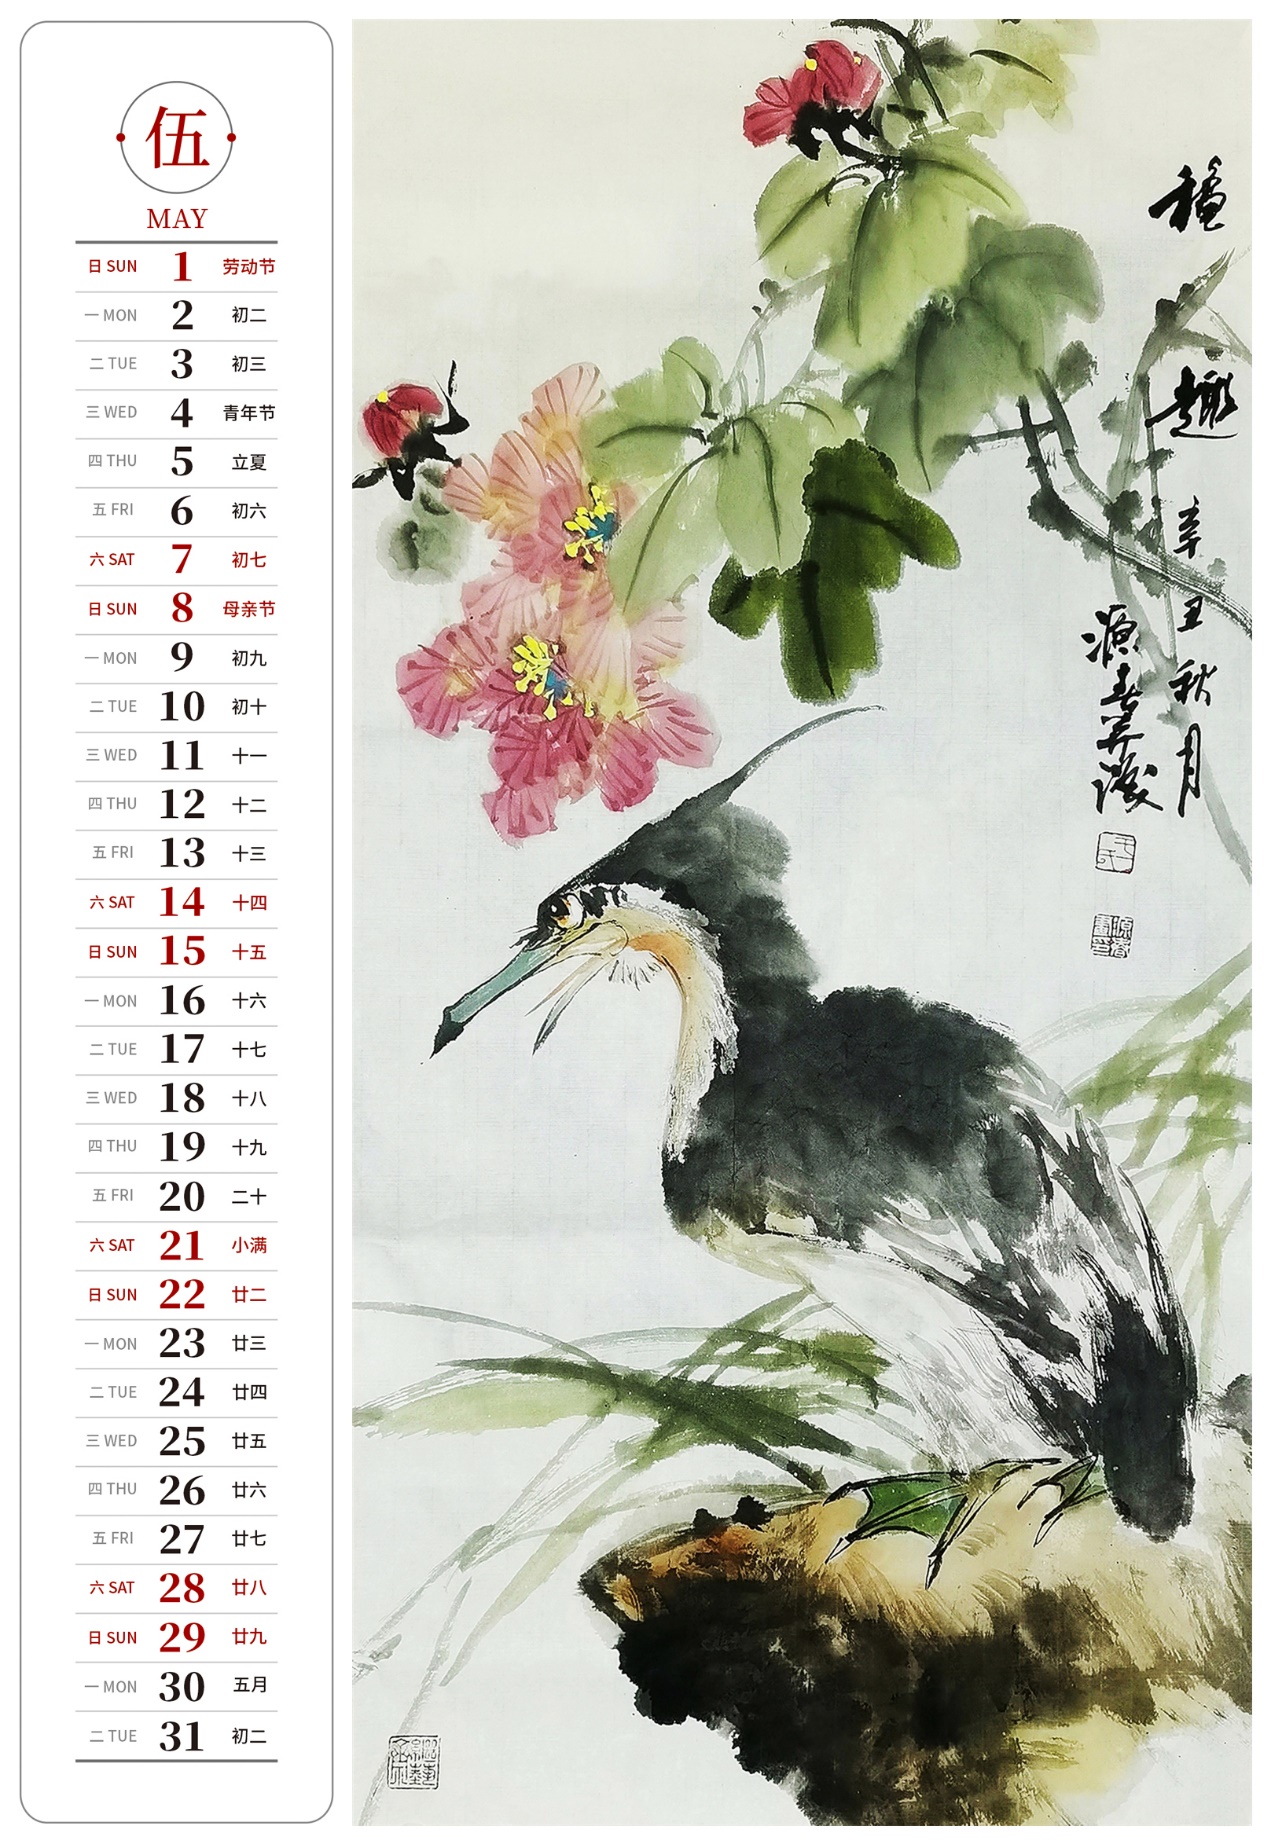 伍
MAY
日 SUN 1 劳动节
一 MON 2 初二
二 TUE 3 初三
三 WED 4 青年节
四 THU 5 立夏
五 FRI 6 初六
六 SAT 7 初七
日 SUN 8 母亲节
一 MON 9 初九
二 TUE 10 初十
三 WED 11 十一
四 THU 12 十二
五 FRI 13 十三
六 SAT 14 十四
日 SUN 15 十五
一 MON 16 十六
二 TUE 17 十七
三 WED 18 十八
四 THU 19 十九
五 FRI 20 二十
六 SAT 21 小满
日 SUN 22 廿二
一 MON 23 廿三
二 TUE 24 廿四
三 WED 25 廿五
四 THU 26 廿六
五 FRI 27 廿七
六 SAT 28 廿八
日 SUN 29 廿九
一 MON 30 五月
二 TUE 31 初二
趣 辛丑秋月
源春